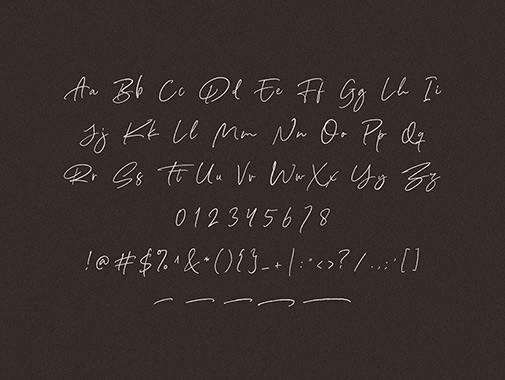 Aa Bb Cc Dd Ee Ff Gg Hh Ii
Jj Kk Ll Mm Nn Oo Pp Qq
Rr Ss Tt Uu Vv Ww Xx Yy Zz
0 1 2 3 4 5 6 7 8
! @ # $ % ^ & * ( ) { } _ + | : " < > ? / . , ; ' [ ]